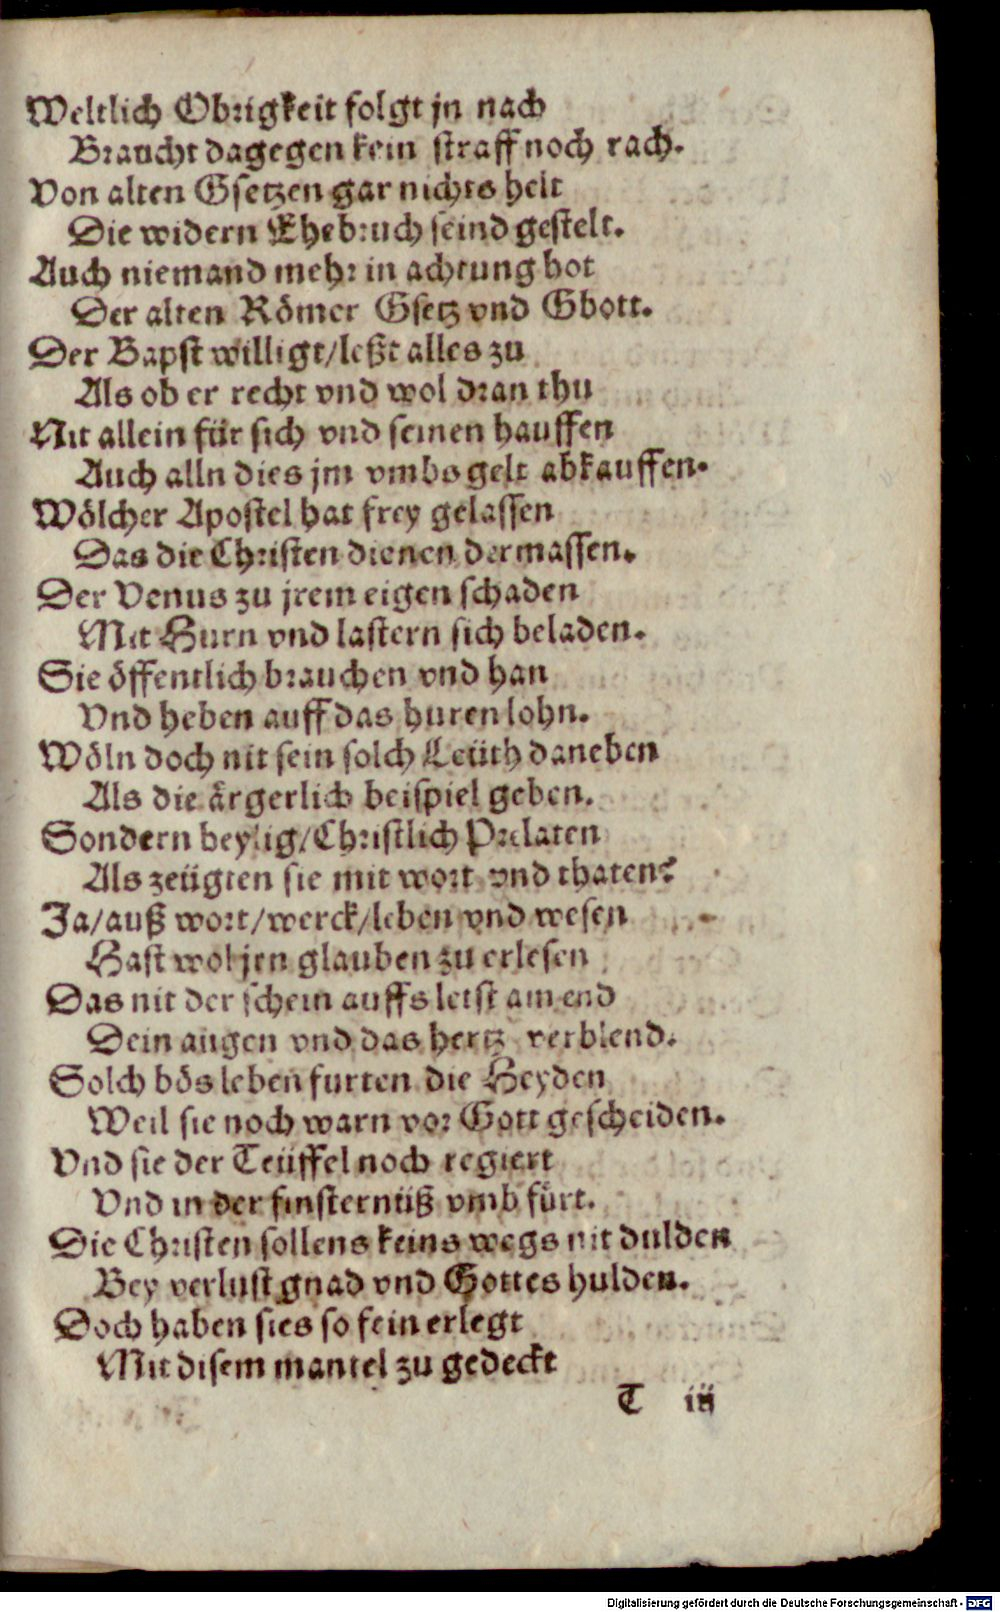 Weltlich Obrigkeit folgt jn nach
Braucht dagegen kein straff noch rach.
Von alten Gsetzen gar nichts helt
Die widern Ehebruch seind gestelt.
Auch niemand mehr in achtung hot
Der alten Römer Gsetz vnd Gbott.
Der Bapst willigt/leßt alles zu
Als ob er recht vnd wol dran thu
Nit allein für sich vnd seinen hauffen
Auch alln dies jm vmbs gelt abkauffen.
Wölcher Apostel hat frey gelassen
Das die Christen dienen dermassen.
Der Venus zu jrem eigen schaden
Mit Hurn vnd lastern sich beladen.
Sie öffentlich brauchen vnd han
Vnd heben auff das huren lohn.
Wöln doch nit sein solch Leüth daneben
Als die ärgerlich beispiel geben.
Sondern heylig/Christlich Prelaten
Als zeügten sie mit wort vnd thaten?
Ja/auß wort/werck/leben vnd wesen
Hast wol jrn glauben zu erlesen
Das nit der schein auffs letst am end
Dein augen vnd das hertz verblend.
Solch bös leben furten die Heyden
Weil sie noch warn vor Gott gescheiden.
Vnd sie der Teüffel noch regiert
Vnd in der finsternüß vmb fürt.
Die Christen sollens keins wegs nit dulden
Bey verlust gnad vnd Gottes hulden.
Doch haben sies so fein erlegt
Mit disem mantel zu gedeckt
T iii
Digitalisierung gefördert durch die Deutsche Forschungsgemeinschaft - DFG